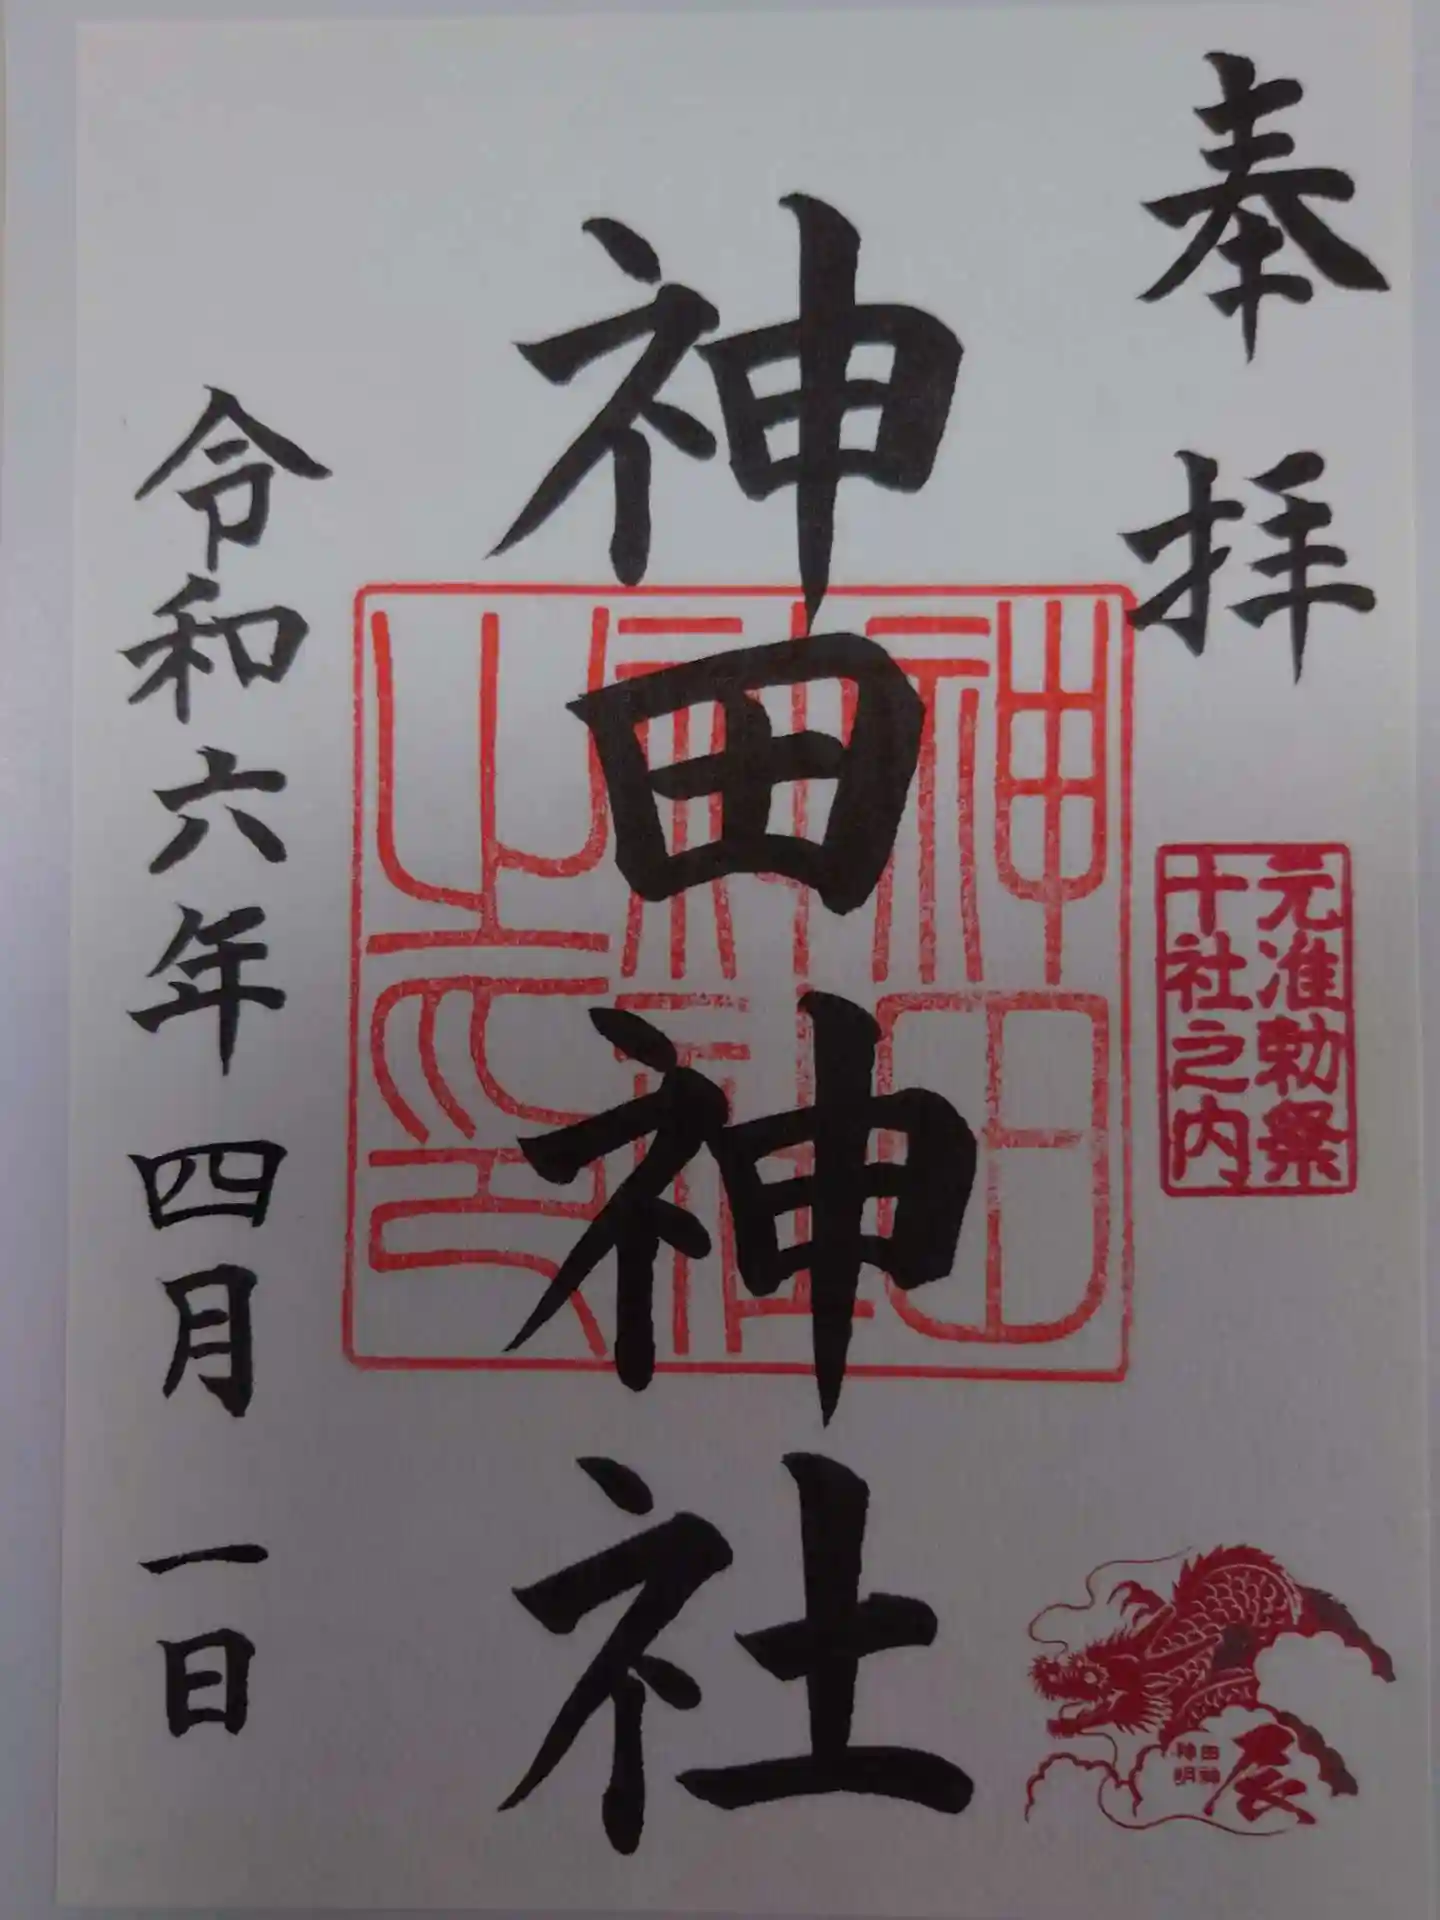 奉拝
元准勅祭
十社之内
神田神社
神田
神社
之印
令和六年四月一日
辰
神田
明神